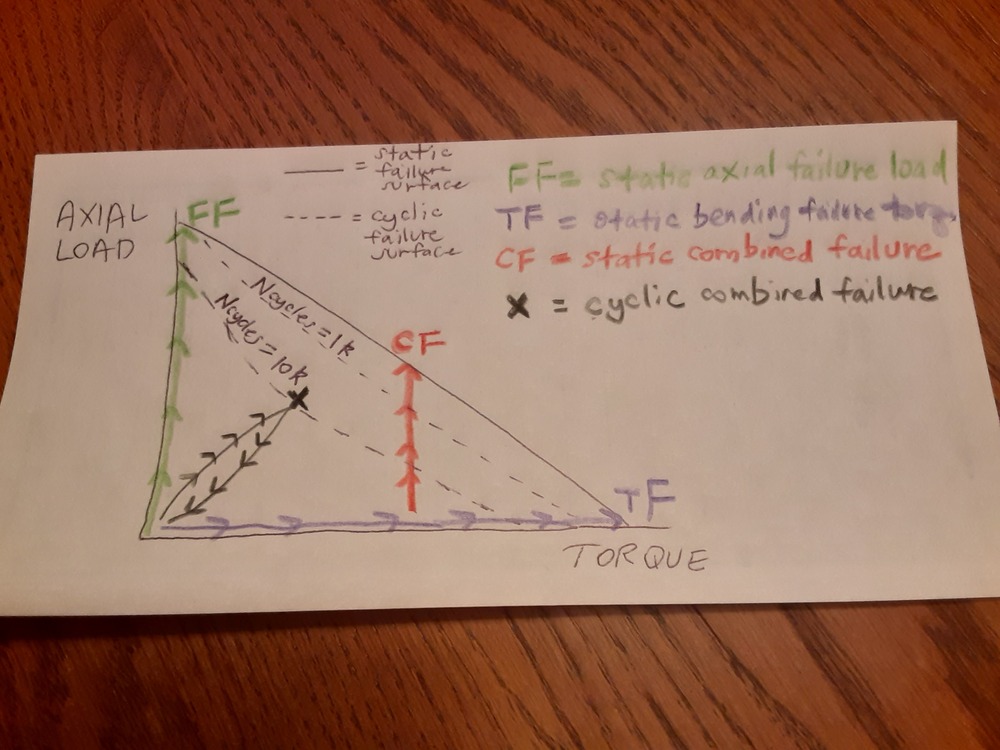 AXIAL
LOAD
FF
= static
failure
surface
= cyclic
failure
surface
FF = static axial failure load
TF = static bending failure torq.
CF = static combined failure
X = cyclic combined failure
Ncycles=1k
Ncycles=10k
CF
X
TF
TORQUE